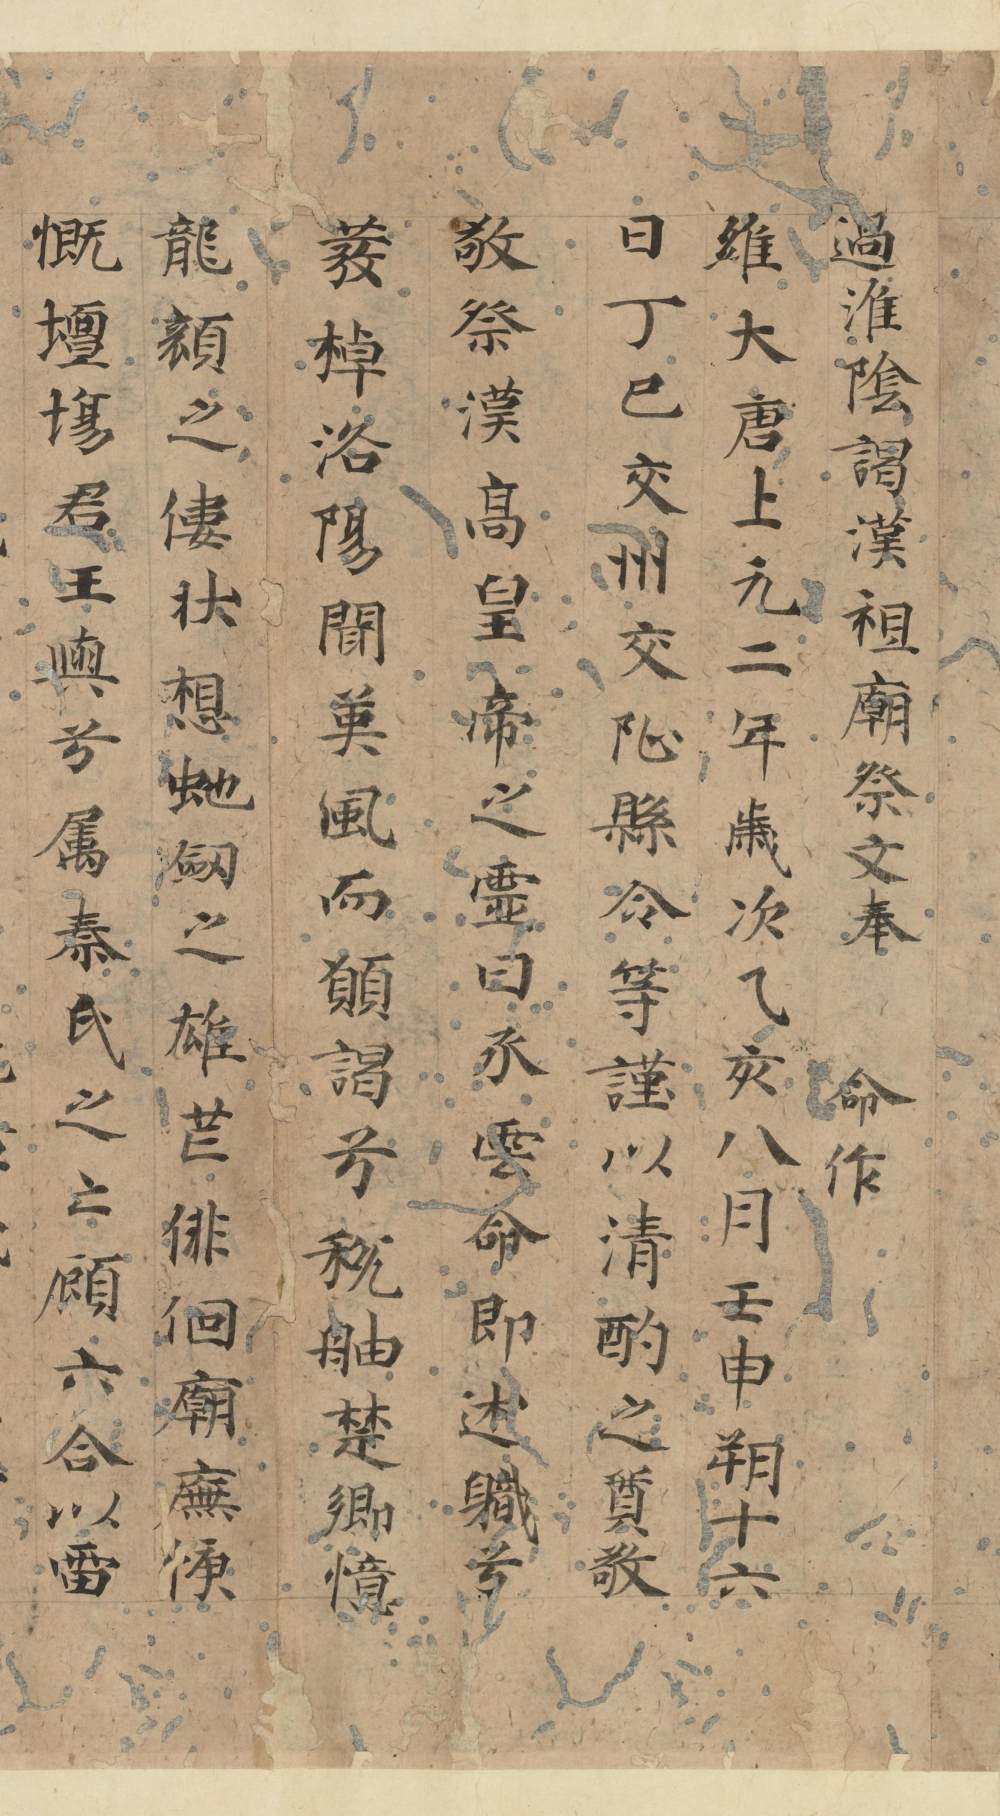 過淮陰謁漢祖廟祭文奉　命作
維大唐上元二年歲次乙亥八月壬申朔十六
日丁巳交州交阯縣令等謹以清酌之奠敬
敬祭漢高皇帝之靈曰承雲命即述職兮
發棹洛陽聞英風而願謁兮稅舳楚鄉憶
龍顔之僂狀想虵劔之雄芒徘徊廟廡悢
慨壇場君王輿兮属秦氏之亡顧六合以雷